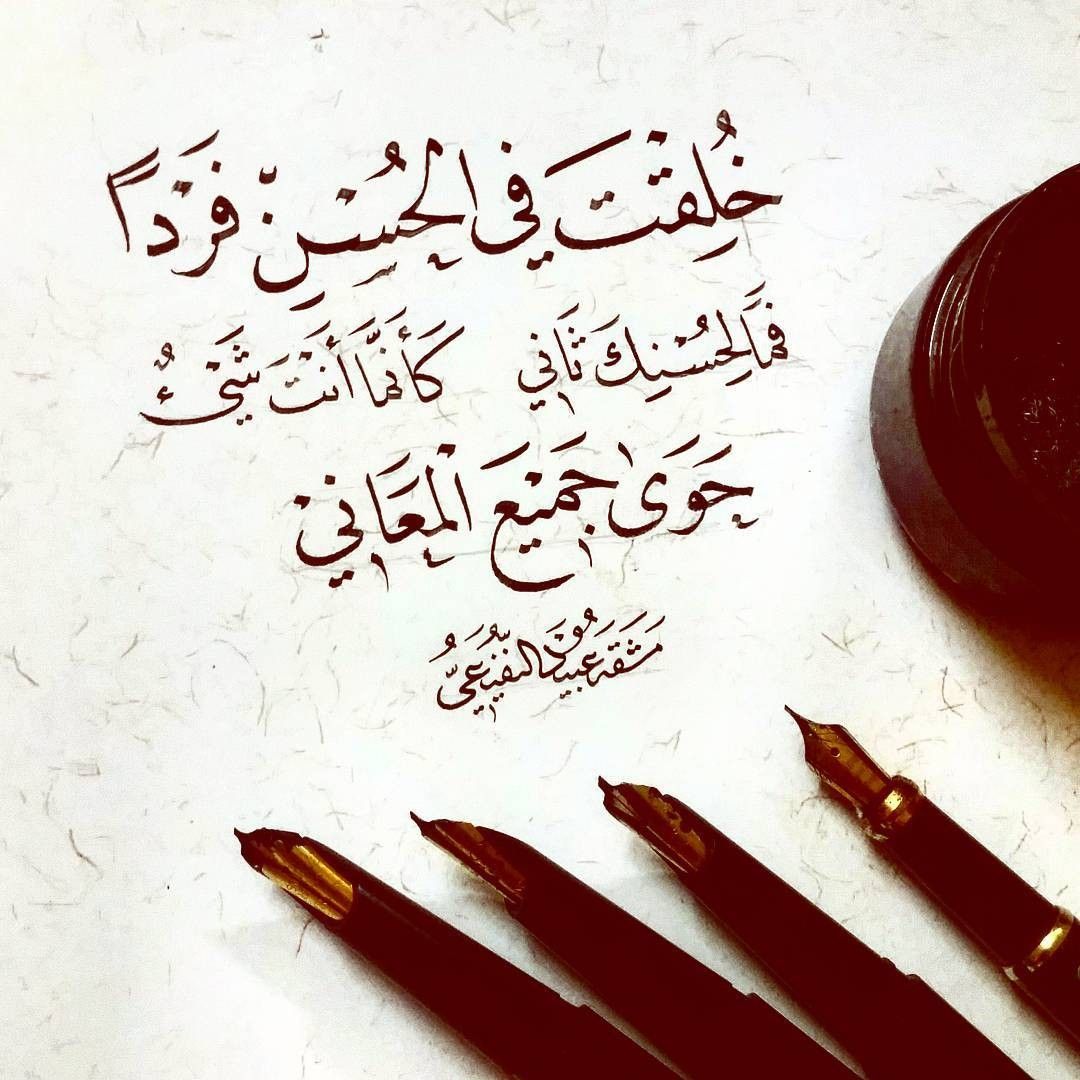 خُلِقْتَ فِي الحُسْنِ فَرْدًا
فَمَا لِحُسْنِكَ ثَانِي كَأَنَّمَا أَنْتَ شَيْءٌ
حَوَى جَمِيْعَ الْمَعَانِيْ
مَشَقَهُ عَبِيدُ النفيعيُّ